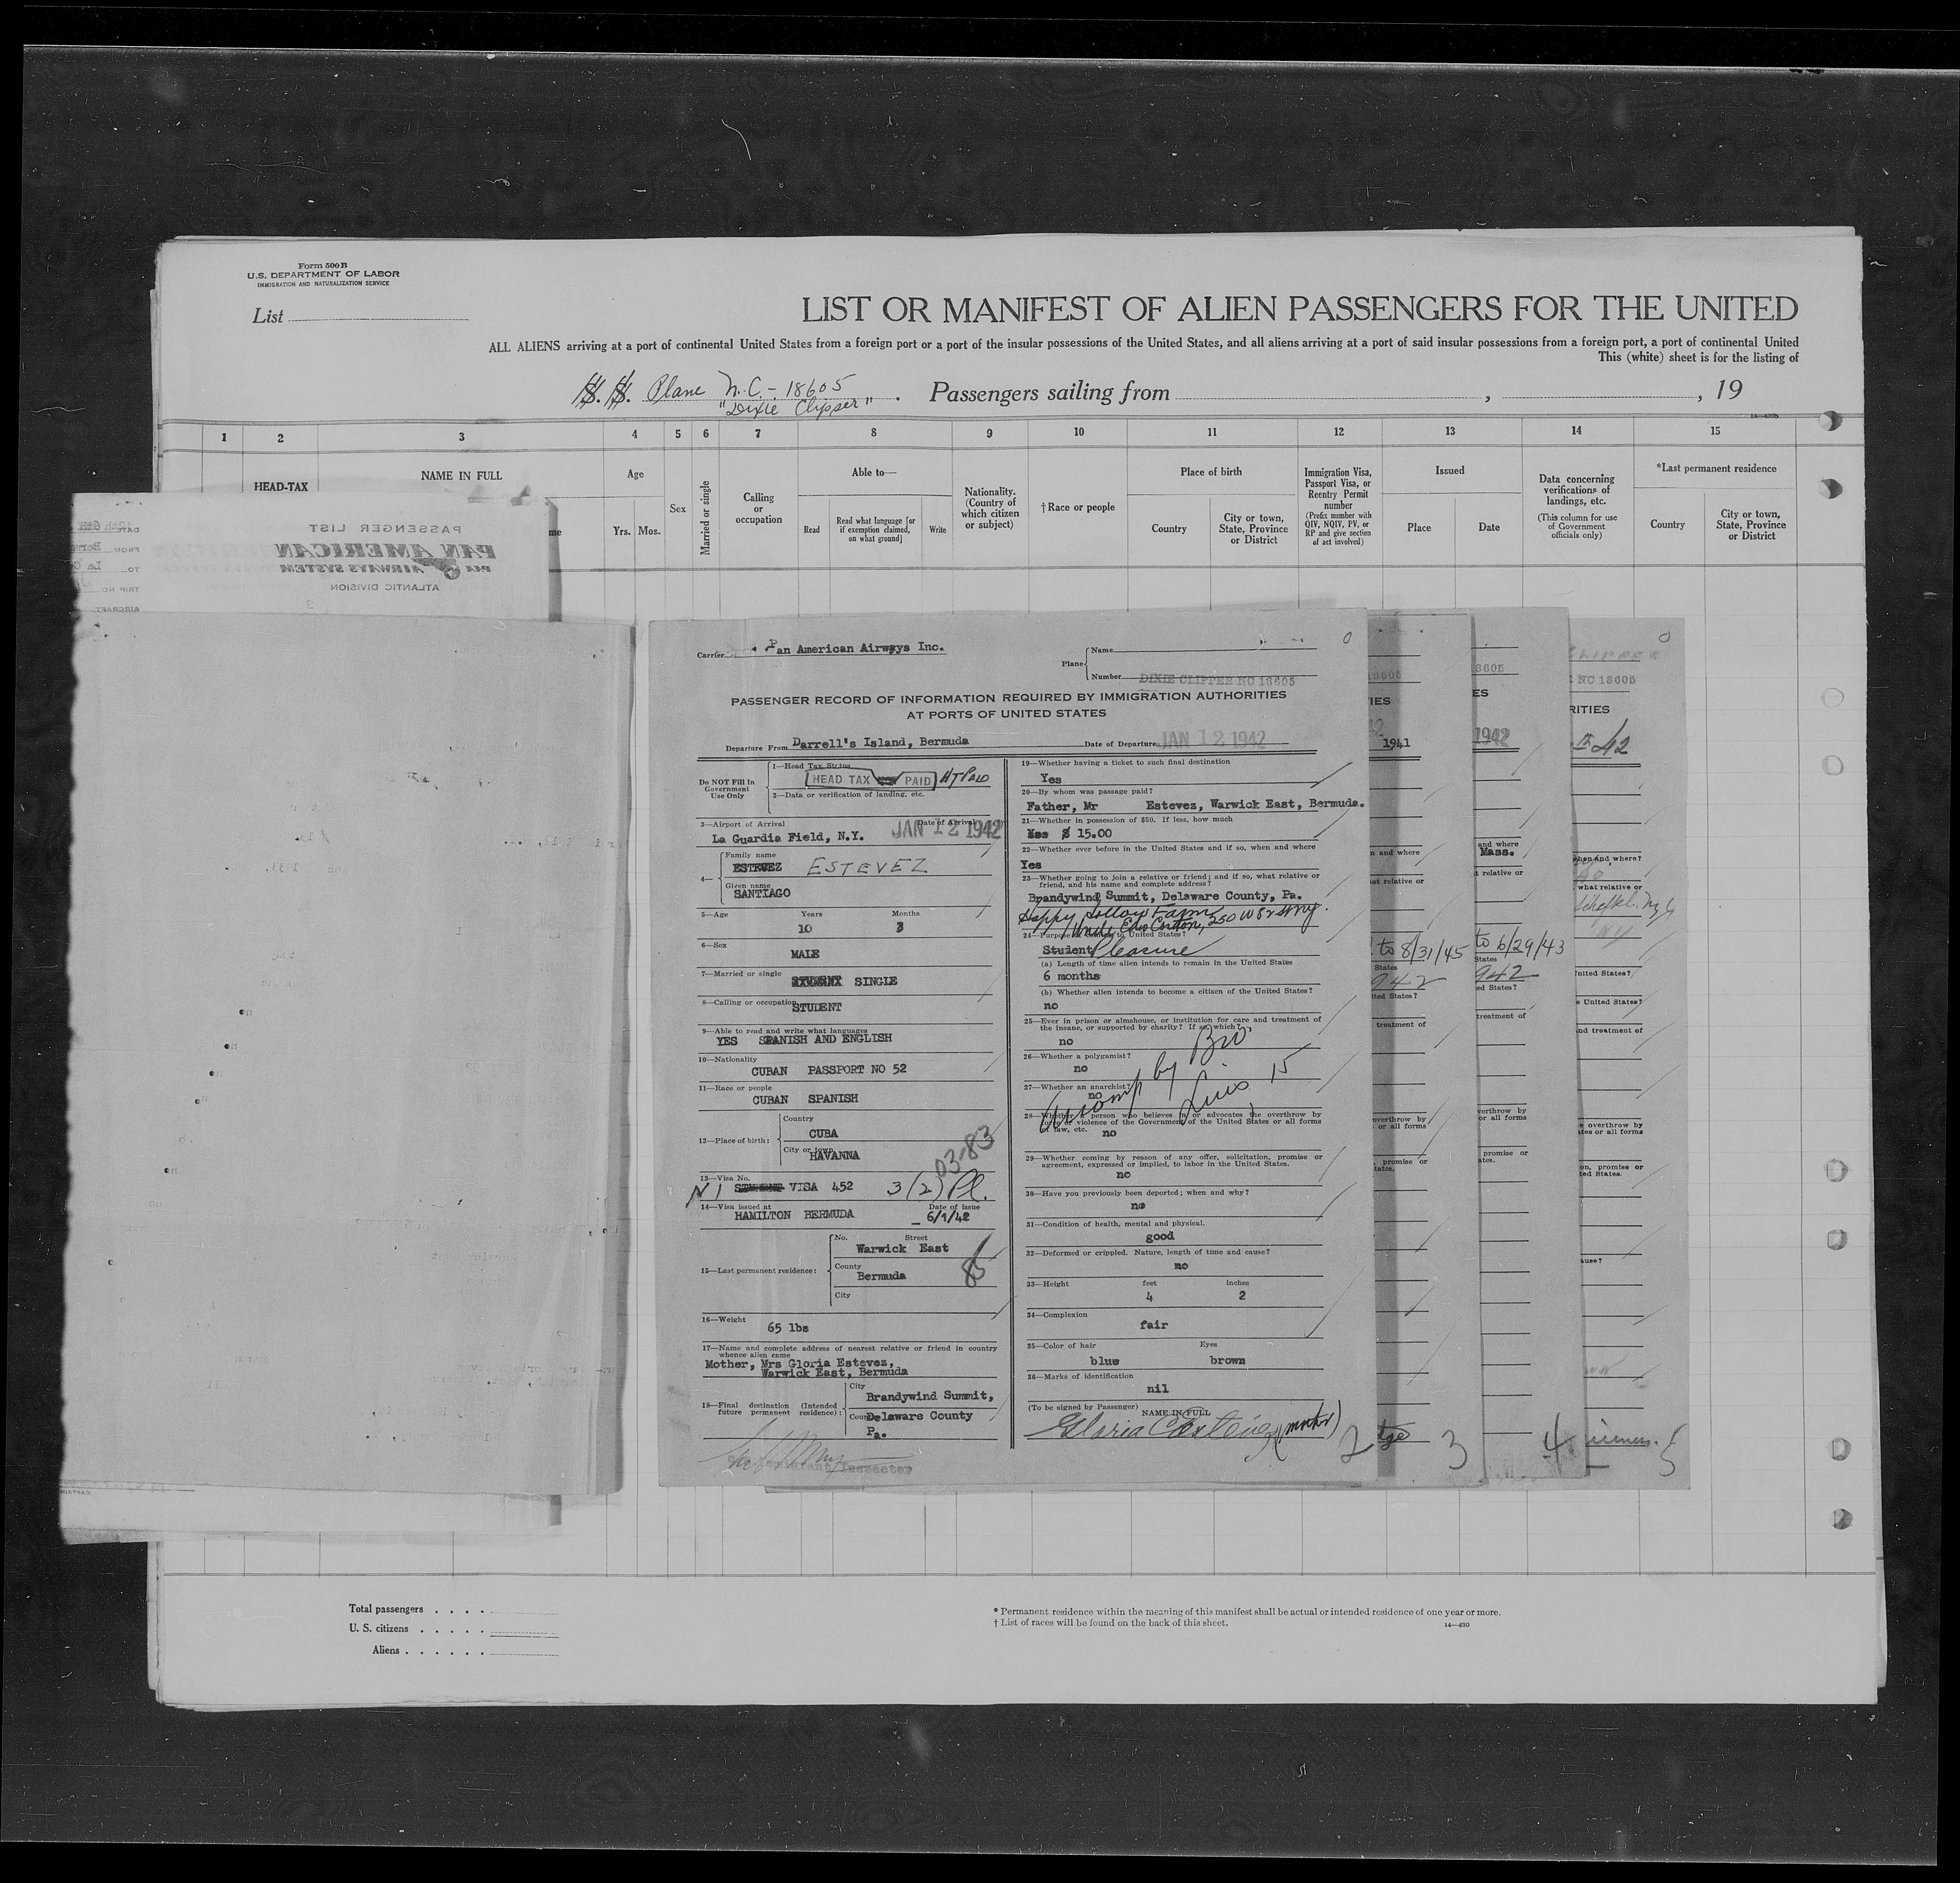 Form 500 B
U.S. DEPARTMENT OF LABOR
IMMIGRATION AND NATURALIZATION SERVICE
List
LIST OR MANIFEST OF ALIEN PASSENGERS FOR THE UNITED
ALL ALIENS arriving at a port of continental United States from a foreign port or a port of the insular possessions of the United States, and all aliens arriving at a port of said insular possessions from a foreign port, a port of continental United
This (white) sheet is for the listing of
S. S. Plane N.C.-18605 Passengers sailing from , , 19
"Dixie Clipper"
1 2 3 4 5 6 7 8 9 10 11 12 13 14 15
HEAD-TAX
NAME IN FULL
Age
Yrs. Mos.
Sex
Married or single
Calling or occupation
Able to—
Read
Read what language [or if exemption claimed, on what ground]
Write
Nationality. (Country of which citizen or subject)
†Race or people
Place of birth
Country
City or town, State, Province or District
Immigration Visa, Passport Visa, or Reentry Permit number
(Prefix number with QIV, NQIV, PV, or RP and give section of act involved)
Issued
Place
Date
Data concerning verifications of landings, etc.
(This column for use of Government officials only)
*Last permanent residence
Country
City or town, State, Province or District
PASSENGER LIST
PAN AMERICAN
AIRWAYS SYSTEM
ATLANTIC DIVISION
DATE
FROM
TO
TRIP NO
AIRCRAFT
Carrier Pan American Airways Inc.
Plane
Name
Number DIXIE CLIPPER NC 18605
PASSENGER RECORD OF INFORMATION REQUIRED BY IMMIGRATION AUTHORITIES
AT PORTS OF UNITED STATES
Departure From Darrell's Island, Bermuda Date of Departure JAN 12 1942
Do NOT Fill In Government Use Only
1—Head Tax Status
HEAD TAX PAID HT PAID
2—Data or verification of landing, etc.
3—Airport of Arrival Date of Arrival
La Guardia Field, N.Y. JAN 12 1942
4—
Family name
ESTEVEZ ESTEVEZ
Given name
SANTIAGO
5—Age Years Months
10 3
6—Sex
MALE
7—Married or single
STUDENT SINGLE
8—Calling or occupation
STUDENT
9—Able to read and write what languages
YES SPANISH AND ENGLISH
10—Nationality
CUBAN PASSPORT NO 52
11—Race or people
CUBAN SPANISH
12—Place of birth:
Country
CUBA
City or town
HAVANNA
03-83
13—Visa No.
N I STUDENT VISA 452 3(2) Pl.
14—Visa issued at Date of issue
HAMILTON BERMUDA 6/1/42
15—Last permanent residence:
No. Street
Warwick East
County
Bermuda
City
16—Weight
65 lbs
17—Name and complete address of nearest relative or friend in country whence alien came
Mother, Mrs Gloria Estevez,
Warwick East, Bermuda
18—Final destination (Intended future permanent residence):
City
Brandywind Summit,
County
Delaware County
Pa.
Inspector
19—Whether having a ticket to such final destination
Yes
20—By whom was passage paid?
Father, Mr Estevez, Warwick East, Bermuda.
21—Whether in possession of $50. If less, how much
Yes $ 15.00
22—Whether ever before in the United States and if so, when and where
Yes
23—Whether going to join a relative or friend; and if so, what relative or friend, and his name and complete address?
Brandywind Summit, Delaware County, Pa.
Happy Hollow Farm
24—Purpose of coming to United States?
Student Pleasure
(a) Length of time alien intends to remain in the United States
6 months
(b) Whether alien intends to become a citizen of the United States?
no
25—Ever in prison or almshouse, or institution for care and treatment of the insane, or supported by charity? If so, which?
no
26—Whether a polygamist?
no
27—Whether an anarchist?
no
Accomp by Bro
Luis 15
28—Whether a person who believes in or advocates the overthrow by force or violence of the Government of the United States or all forms of law, etc.
no
29—Whether coming by reason of any offer, solicitation, promise or agreement, expressed or implied, to labor in the United States.
no
30—Have you previously been deported; when and why?
no
31—Condition of health, mental and physical.
good
32—Deformed or crippled. Nature, length of time and cause?
no
33—Height feet inches
4 2
34—Complexion
fair
35—Color of hair Eyes
blue brown
36—Marks of identification
nil
(To be signed by Passenger) NAME IN FULL
Gloria C Estevez (mother)
2
3
4
5
1941
1942
NC 18605
Mass.
to 8/31/45
to 6/29/43
942
942
Total passengers
U. S. citizens
Aliens
* Permanent residence within the meaning of this manifest shall be actual or intended residence of one year or more.
† List of races will be found on the back of this sheet.
14—430